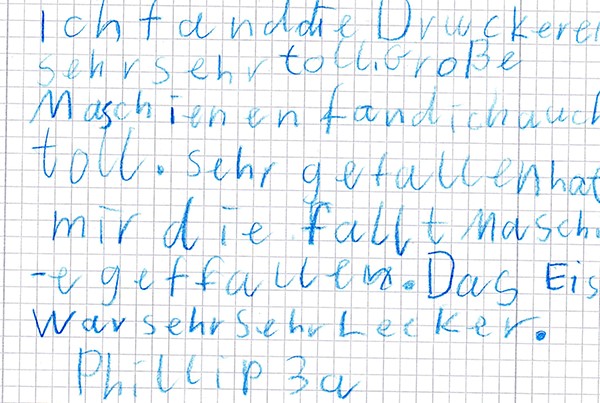 Ich fand die Druckerei
sehr sehr toll. Große
Maschienen fand ich auch
toll. sehr gefallen hat
mir die fallt Masch
-e geffallen. Das Eis
war sehr sehr Lecker.
Phillip 3a